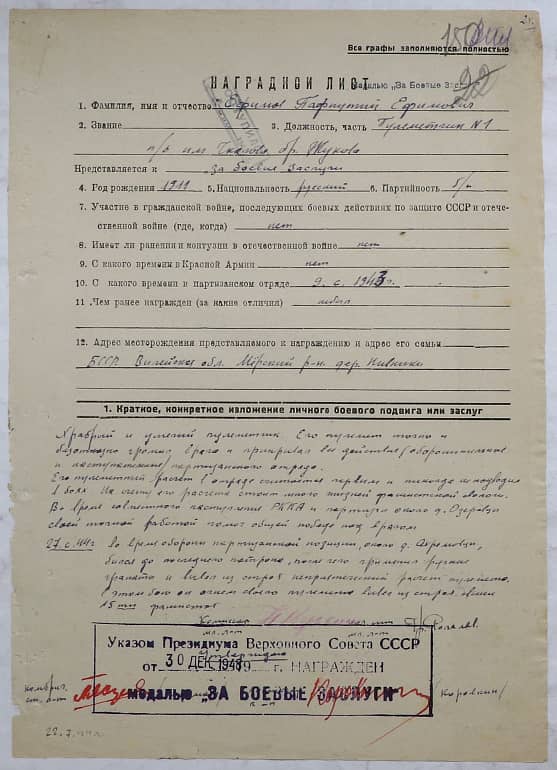 Все графы заполняются полностью
НАГРАДНОЙ ЛИСТ
Медалью „За Боевые Зас
1. Фамилия, имя и отчество Ефимов Пафнутий Ефимович
2. Звание 3. Должность, часть Пулеметчик N1
п/о им Чкалова бр. Жукова
Представляется к за боевые заслуги
4. Год рождения 1911 5. Национальность русский 6. Партийность б/п
7. Участие в гражданской войне, последующих боевых действиях по защите СССР и отече-
ственной войне (где, когда) нет
8. Имеет ли ранения и контузии в отечественной войне нет
9. С какого времени в Красной Армии нет
10. С какого времени в партизанском отряде 9. с. 1943г.
11. Чем ранее награжден (за какие отличия)
12. Адрес месторождения представляемого к награждению и адрес его семьи
БССР Вилейская обл. Мёрский р-н. дер. Нивники
1. Краткое, конкретное изложение личного боевого подвига или заслуг
Храбрый и умелый пулеметчик Его пулемет точно и
безотказно громил врага и прикрывал все действия (оборонительные
и наступательные) партизанского отряда.
Его пулеметный расчет в отряде считается первым и никогда не подводил
в боях На счету его расчета стоит много жизней фашистской сволочи.
Во время совместного наступления РККА и партизан около д. Озеровцы
своей точной работой помог общей победе над врагом
27.с.44г во время обороны партизанской позиции, около д. Ахремовцы,
бился до последнего патрона, после чего применил ручные
гранаты и вывел из строя неприятельский расчет пулемета.
этом бою он огнем своего пулемета вывел из строя свыше
15 ти фашистов
Указом Президиума Верховного Совета СССР
от 30 ДЕК 1948 г. НАГРАЖДЕН
медалью „ЗА БОЕВЫЕ ЗАСЛУГИ"
/Коровкин/
22.7.44г.